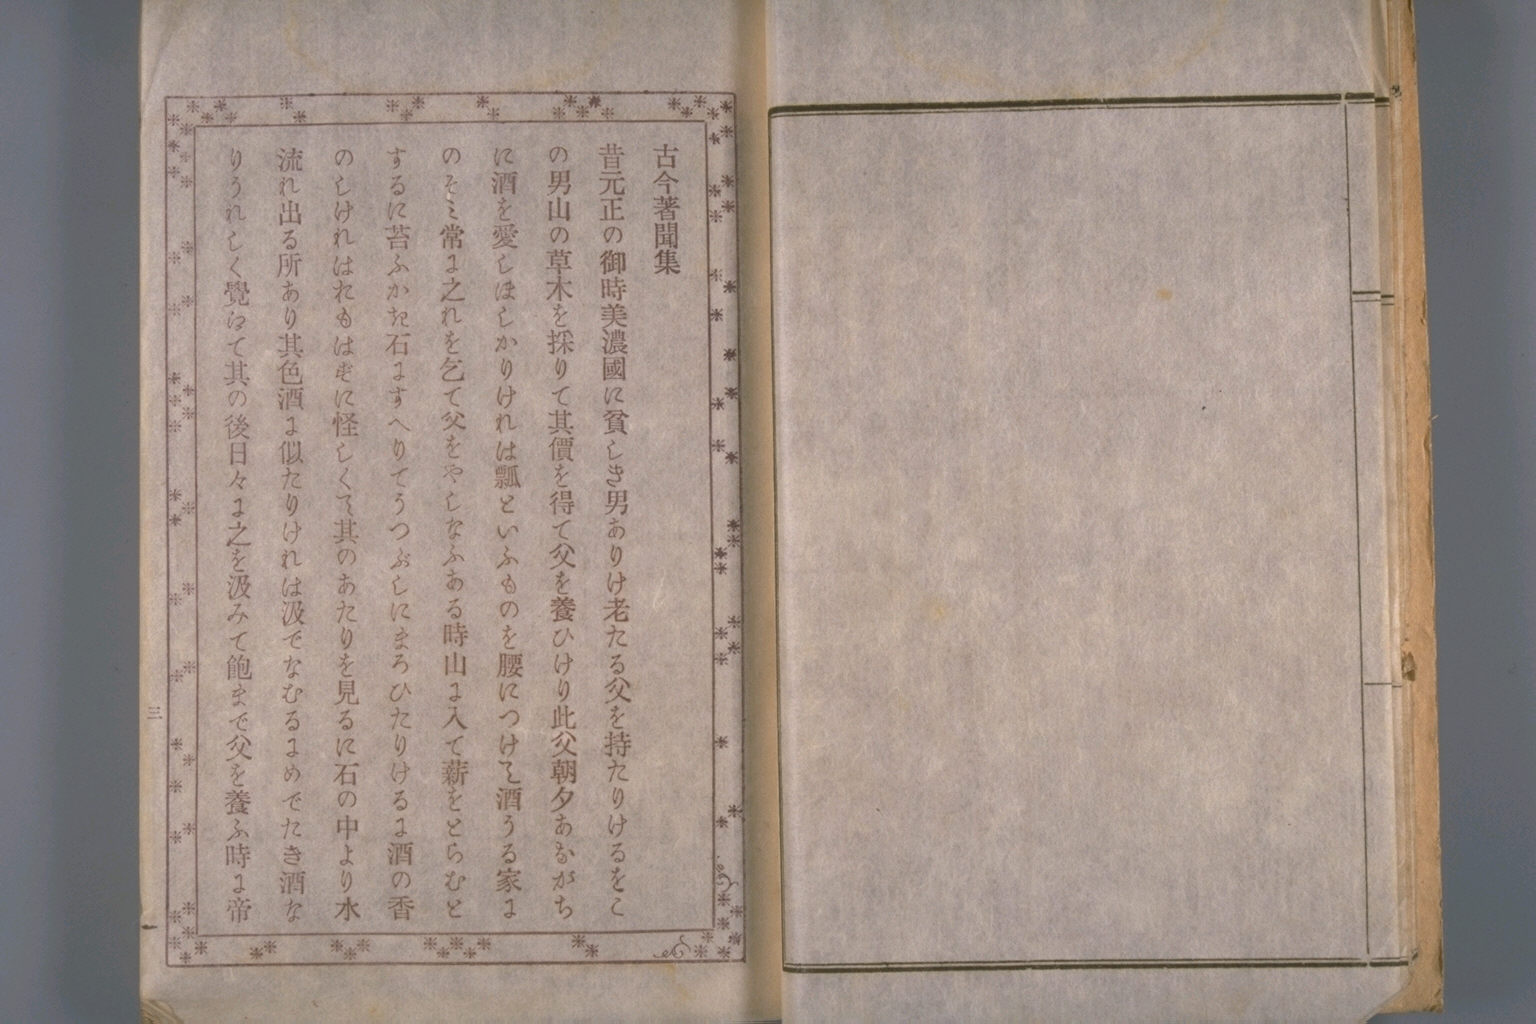 古今著聞集
昔元正の御時美濃國に貧しき男ありけ老たる父を持たりけるをこ
の男山の草木を採りて其價を得て父を養ひけり此父朝夕あながち
に酒を愛しほしかりけれは瓢といふものを腰につけて酒うる家に
のそミ常に之れを乞て父をやしなふある時山に入て薪をとらむと
するに苔ふかき石にすへりてうつぶしにまろひたりけるに酒の香
のしけれはおもはずに怪しくて其のあたりを見るに石の中より水
流れ出る所あり其色酒に似たりけれは汲でなむるにめでたき酒な
りうれしく覺ねて其の後日々に之を汲みて飽まで父を養ふ時に帝
三